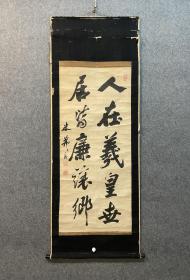 人在羲皇世
居當廉讓鄉